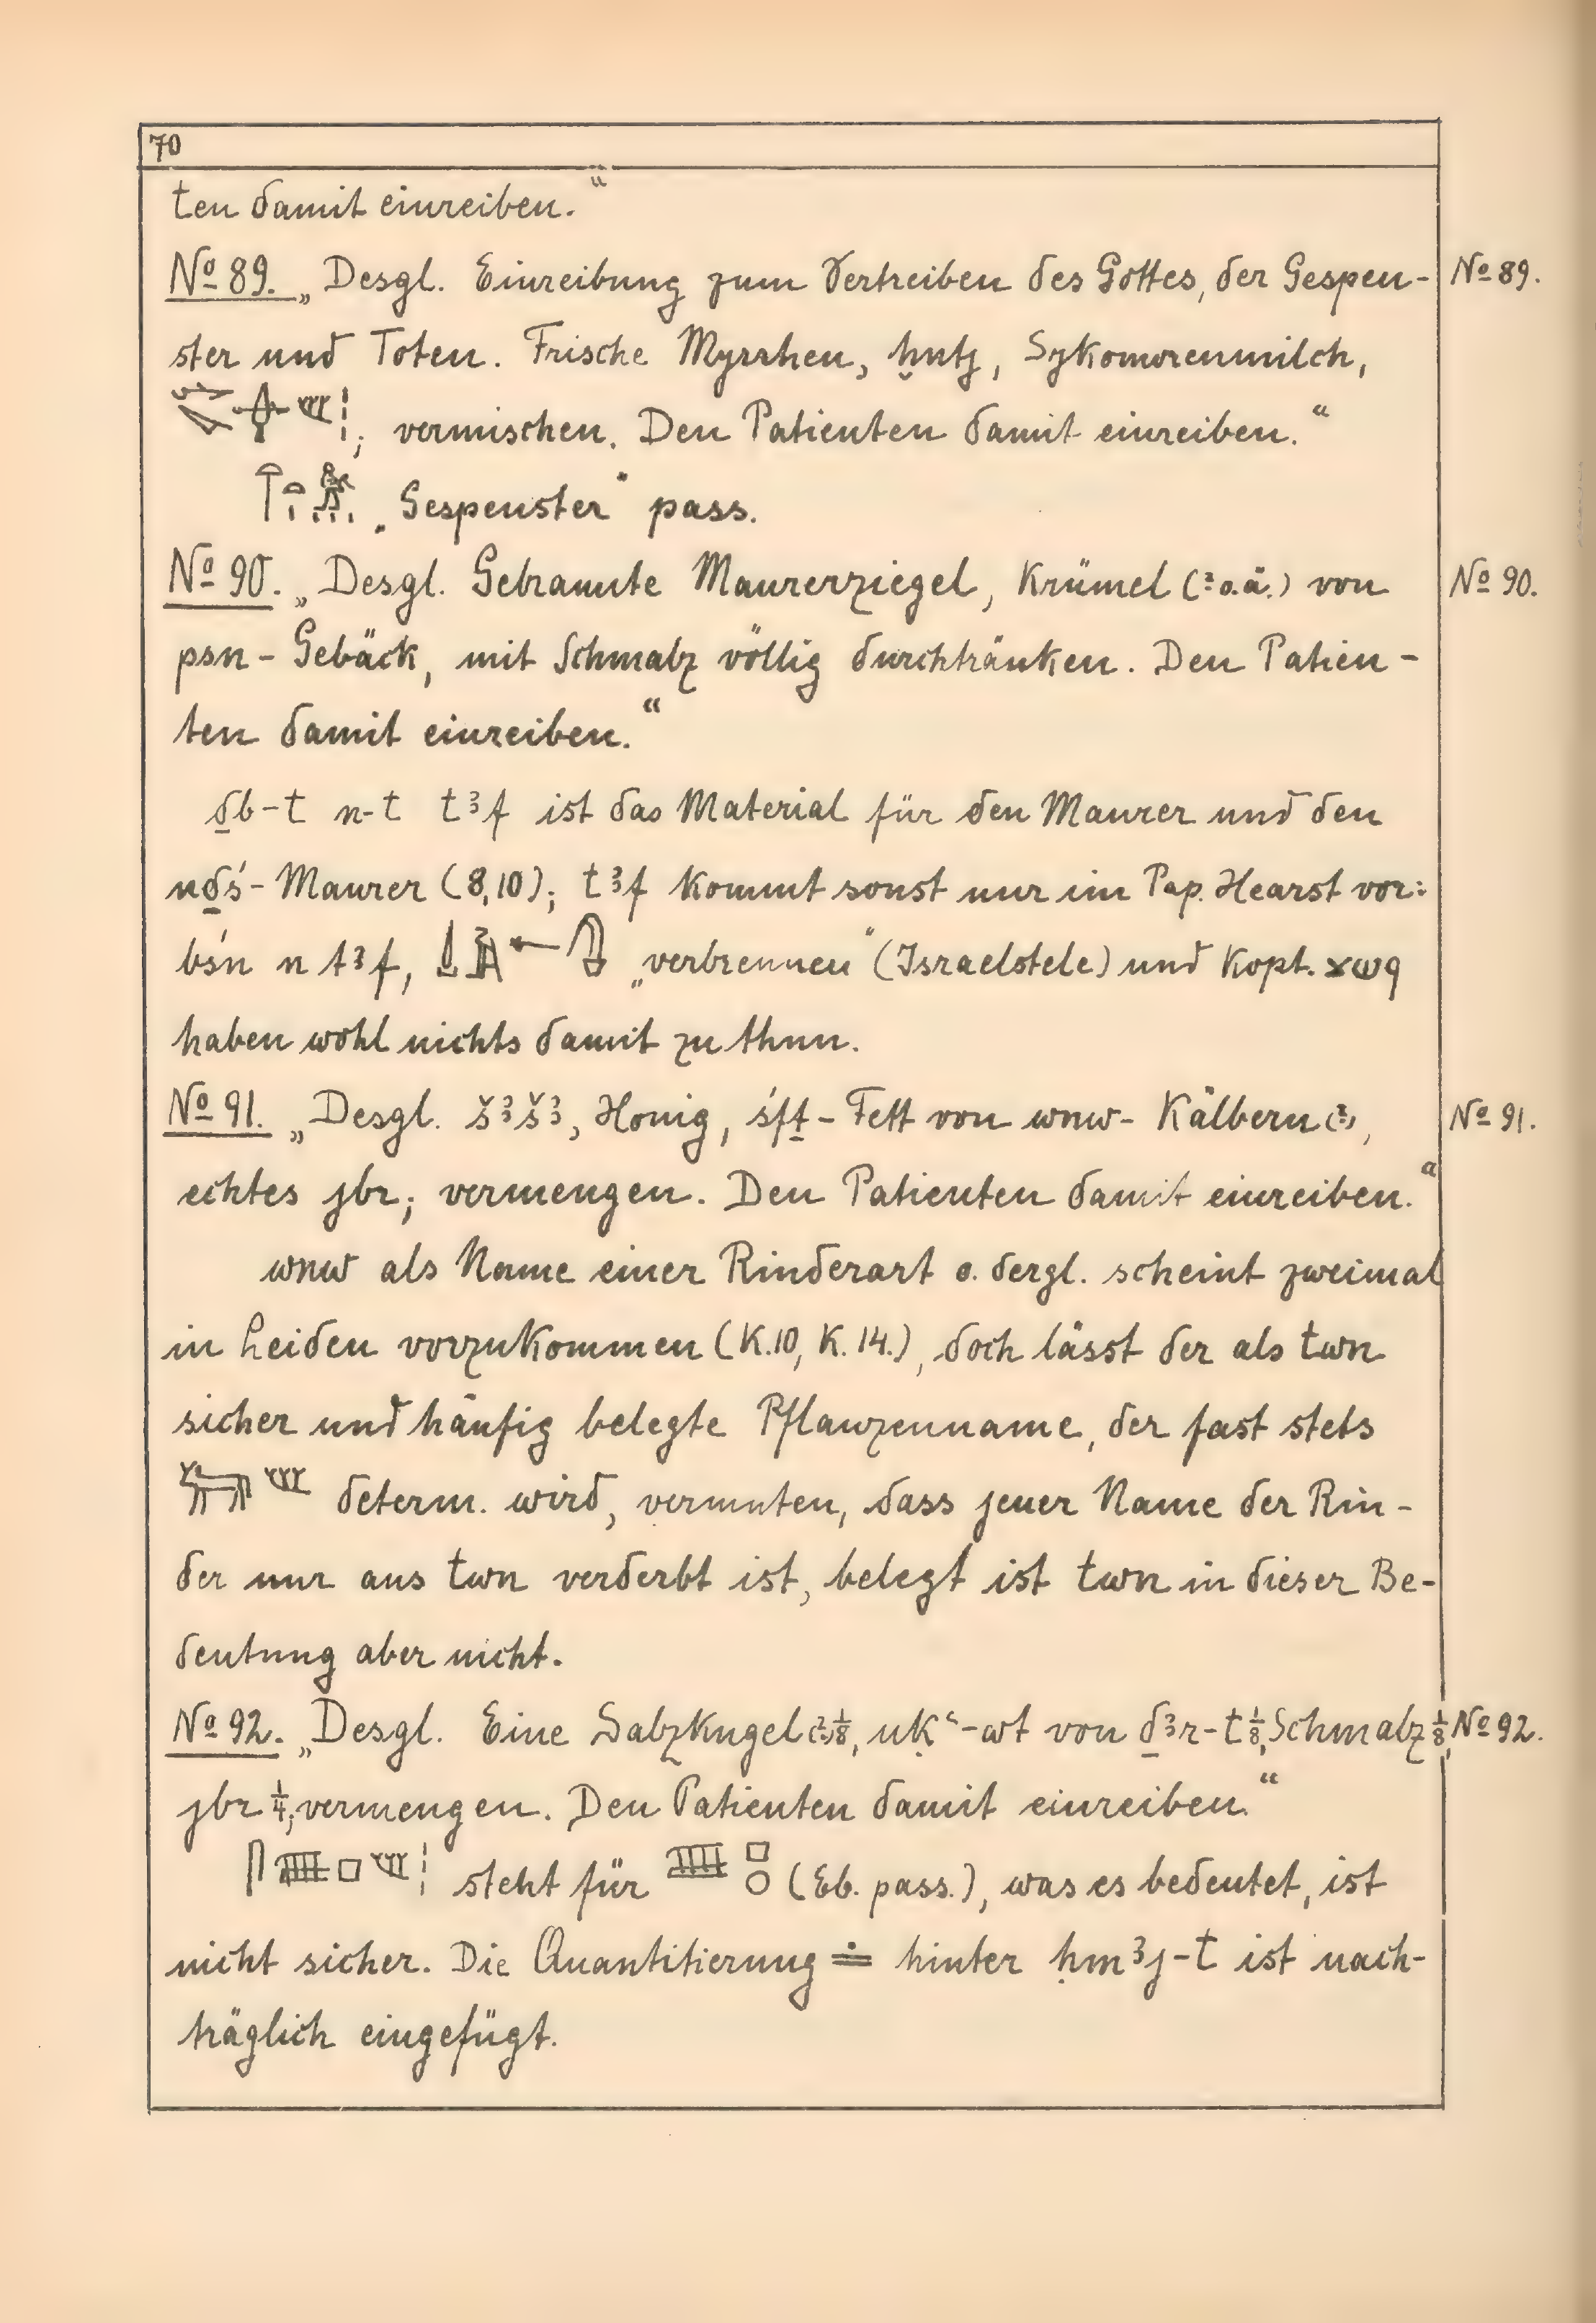 70
ten damit einreiben.“
No 89. „Desgl. Einreibung zum Vertreiben des Gottes, der Gespen- No 89.
ster und Toten. Frische Myrrhen, ḫntj, Sykomorenmilch,
; vermischen. Den Patienten damit einreiben.“
„Gespenster“ pass.
No 90. „Desgl. Gebrannte Maurerziegel, Krümel (? o.ä.) von No 90.
psn-Gebäck, mit Schmalz völlig durchtränken. Den Patien-
ten damit einreiben.“
ḏb-t n-t tꜣf ist das Material für den Maurer und den
nḏś-Maurer (8,10); tꜣf kommt sonst nur im Pap. Hearst vor:
bśn n tꜣf, „verbrennen“ (Israelstele) und kopt. ϫⲱϥ
haben wohl nichts damit zu thun.
No 91. „Desgl. šꜣšꜣ, Honig, śfṯ-Fett von wnw-Kälbern(?), No 91.
echtes jbr; vermengen. Den Patienten damit einreiben.“
wnw als Name einer Rinderart o. dergl. scheint zweimal
in Leiden vorzukommen (K.10, K.14.), doch lässt der als twn
sicher und häufig belegte Pflanzenname, der fast stets
determ. wird, vermuten, dass jener Name der Rin-
der nur aus twn verderbt ist, belegt ist twn in dieser Be-
deutung aber nicht.
No 92. „Desgl. Eine Salzkugel(?) ⅛, nḳꜥ-wt von ḏꜣr-t ⅛, Schmalz ⅛, No 92.
jbr ¼; vermengen. Den Patienten damit einreiben.“
steht für (Eb. pass.), was es bedeutet, ist
nicht sicher. Die Quantitierung hinter ḥmꜣj-t ist nach-
träglich eingefügt.